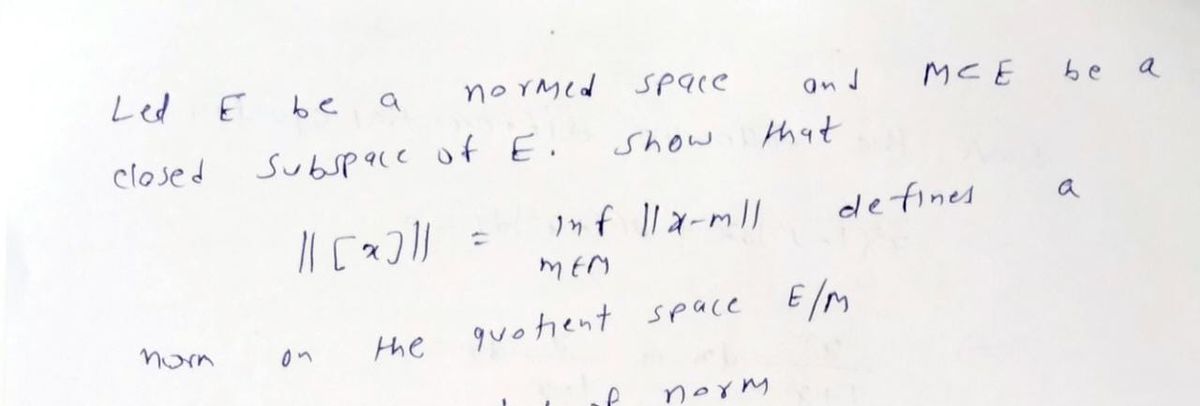 Led E be a normed space and M⊂E be a
closed subspace of E. show that
||[x]|| = inf ||x-m|| defines a
m∈M
norn on the quotient space E/M
norm